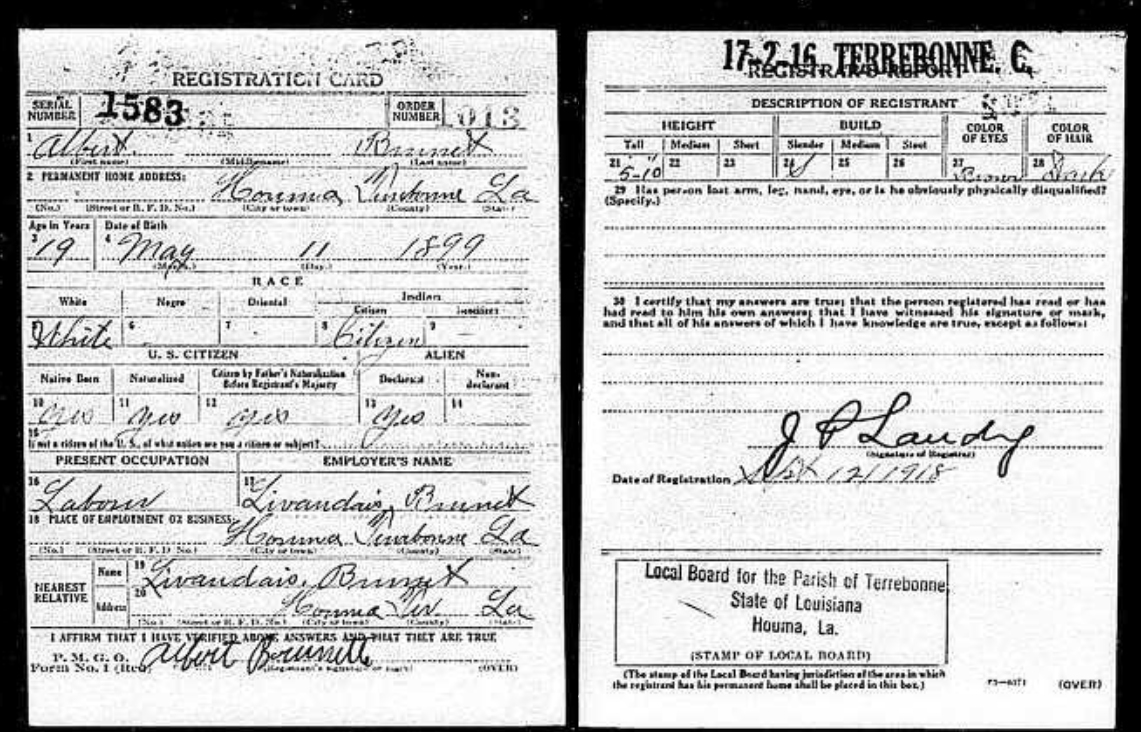 REGISTRATION CARD
SERIAL NUMBER 1583 ORDER NUMBER 1013
1 Albert Brunet
(First name) (Middle name) (Last name)
2 PERMANENT HOME ADDRESS:
Houma Terrebonne La
(No.) (Street or R. F. D. No.) (City or town) (County) (State)
Age in Years Date of Birth
3 19 4 May 11 1899
(Month.) (Day.) (Year.)
RACE
White Negro Oriental Indian
Citizen
5 White 6 7 8 Citizen 9 -
U. S. CITIZEN ALIEN
Native Born Naturalized Citizen by Father's Naturalization Before Registrant's Majority Declarant Non-declarant
10 yes 11 yes 12 yes 13 yes 14
15
If not a citizen of the U. S., of what nation are you a citizen or subject?
PRESENT OCCUPATION EMPLOYER'S NAME
16 Laborer 17 Livandais, Brunet
18 PLACE OF EMPLOYMENT OR BUSINESS:
Houma Terrebonne La
(No.) (Street or R. F. D. No.) (City or town) (County) (State)
NEAREST RELATIVE Name 19 Livandais, Brunet
Address 20 Houma Ter La
(No.) (Street or R. F. D. No.) (City or town) (County) (State)
I AFFIRM THAT I HAVE VERIFIED ABOVE ANSWERS AND THAT THEY ARE TRUE
P. M. G. O.
Form No. 1 (Red) Albert Brunette
(Registrant's signature or mark) (OVER)
17-2-16 TERREBONNE. C.
REGISTRAR'S REPORT
DESCRIPTION OF REGISTRANT
HEIGHT BUILD COLOR OF EYES COLOR OF HAIR
Tall Medium Short Slender Medium Stout
21 5-10 22 23 24 25 26 27 Brown 28 Dark
29 Has person lost arm, leg, hand, eye, or is he obviously physically disqualified?
(Specify.)
30 I certify that my answers are true; that the person registered has read or has
had read to him his own answers; that I have witnessed his signature or mark,
and that all of his answers of which I have knowledge are true, except as follows:
J P Landry
(Signature of Registrar)
Date of Registration Sept 12 1918
Local Board for the Parish of Terrebonne,
State of Louisiana
Houma, La.
(STAMP OF LOCAL BOARD)
(The stamp of the Local Board having jurisdiction of the area in which
the registrant has his permanent home shall be placed in this box.)
(OVER)